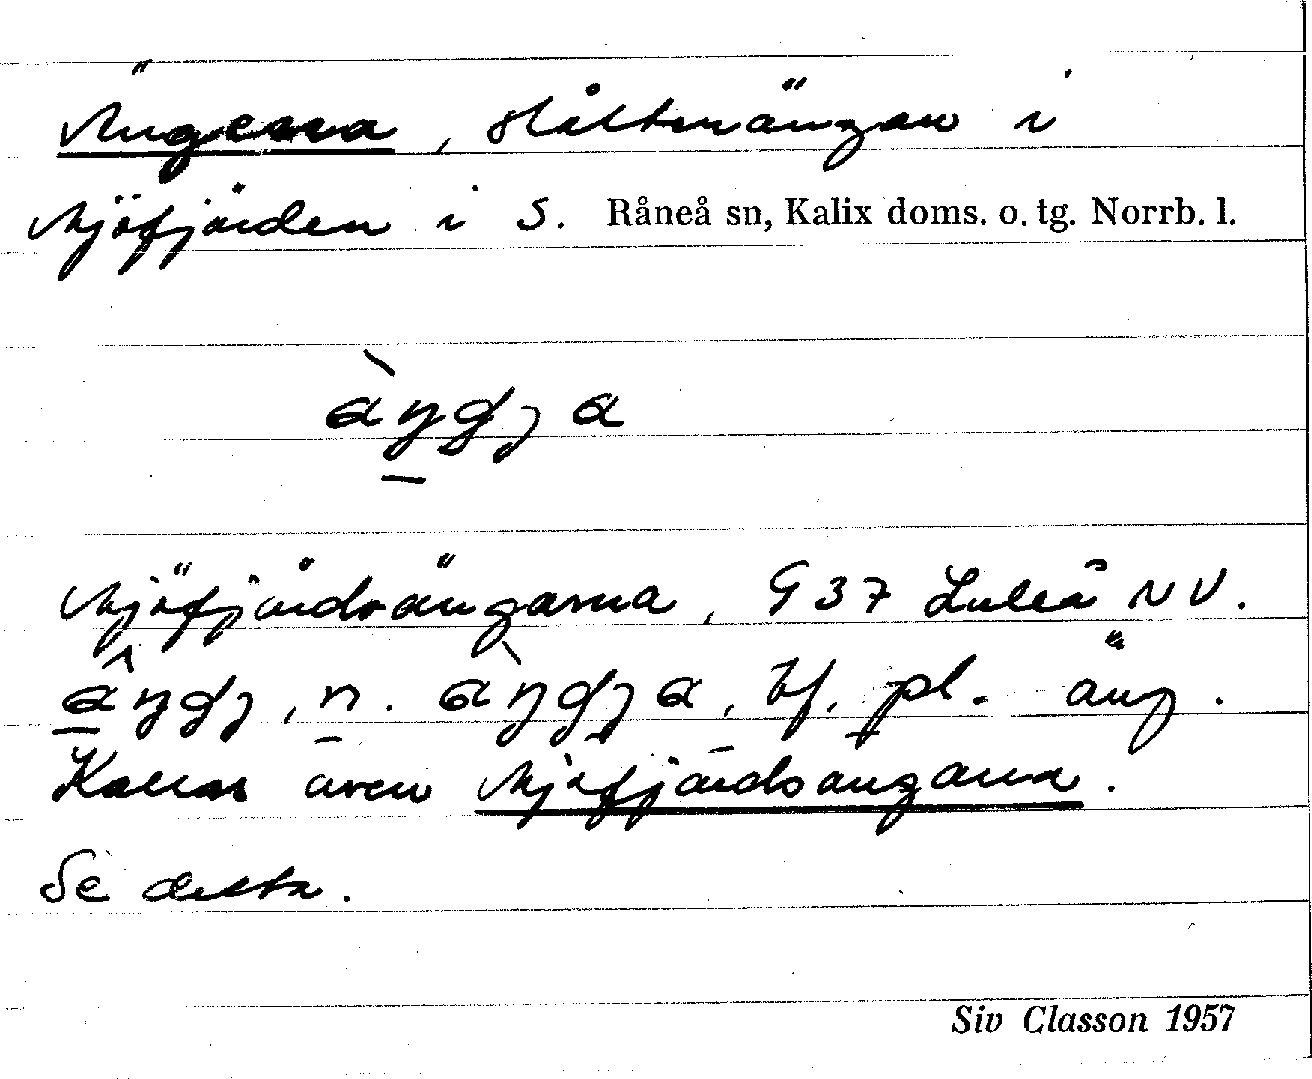 Ängena, slåtterängar i
Mjöfjärden i S. Råneå sn, Kalix doms. o. tg. Norrb. l.
Mjöfjärdsängarna, 9 37 Luleå NV.
n. bf. pl. äng.
Kallas även Mjöfjärdsängarna.
Se detta.
Siv Classon 1957